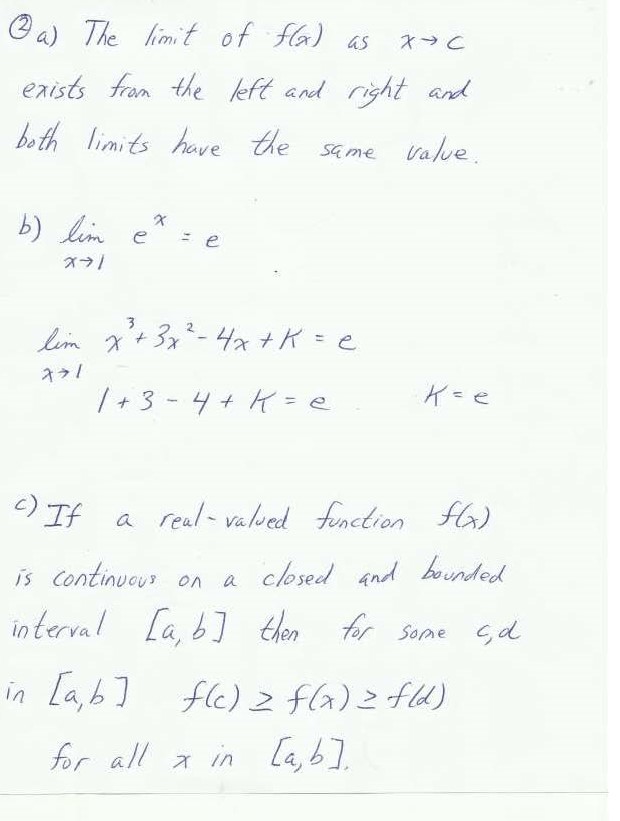 ② a) The limit of f(x) as x→c
exists from the left and right and
both limits have the same value.
b) lim e^x = e
x→1
lim x³+3x²-4x+K = e
x→1
1+3-4+K=e K=e
c) If a real-valued function f(x)
is continuous on a closed and bounded
interval [a,b] then for some c,d
in [a,b] f(c) ≥ f(x) ≥ f(d)
for all x in [a,b].